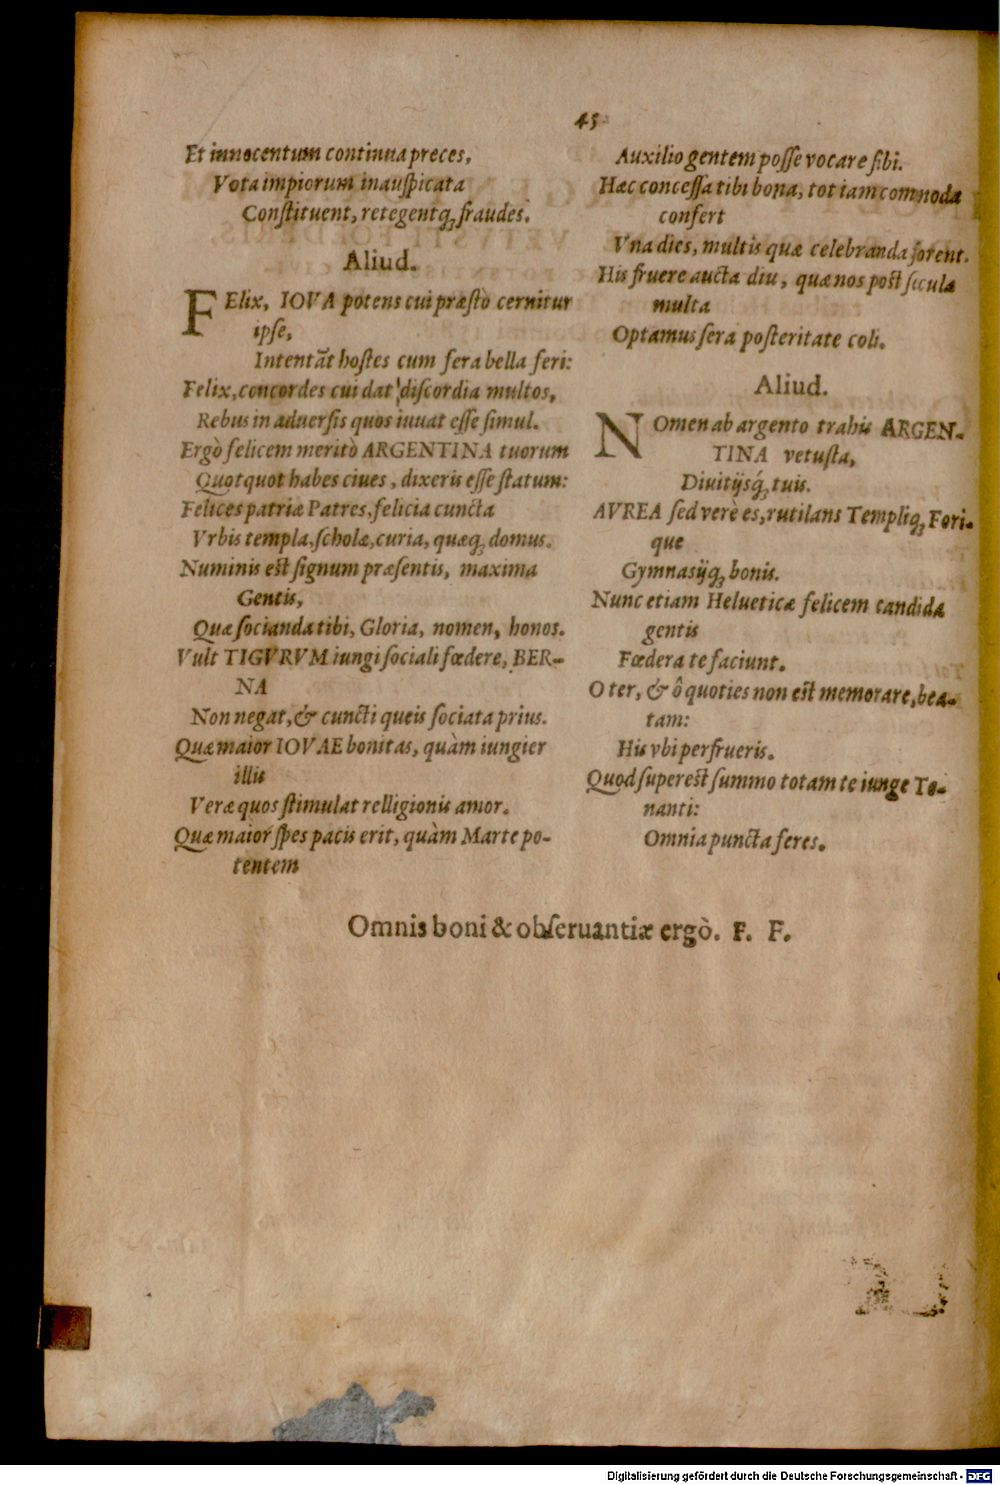 45
Et innocentum continua preces,
Vota impiorum inauspicata
Constituent, retegentq́; fraudes.
Aliud.
FElix, IOVA potens cui præstò cernitur
ipse,
Intentāt hostes cum fera bella feri:
Felix, concordes cui dat discordia multos,
Rebus in aduersis quos iuuat esse simul.
Ergò felicem meritò ARGENTINA tuorum
Quotquot habes ciues, dixeris esse statum:
Felices patriæ Patres, felicia cuncta
Vrbis templa, scholæ, curia, quæq; domus.
Numinis est signum præsentis, maxima
Gentis,
Quæ socianda tibi, Gloria, nomen, honos.
Vult TIGVRVM iungi sociali fœdere, BER-
NA
Non negat, & cuncti queis sociata prius.
Quæ maior IOVAE bonitas, quàm iungier
illis
Veræ quos stimulat relligionis amor.
Quæ maior spes pacis erit, quàm Marte po-
tentem
Auxilio gentem posse vocare sibi.
Hæc concessa tibi bona, tot iam commoda
confert
Vna dies, multis quæ celebranda forent.
His fruere aucta diu, quæ nos post secula
multa
Optamus sera posteritate coli.
Aliud.
NOmen ab argento trahis ARGEN-
TINA vetusta,
Diuitijsq́; tuis.
AVREA sed verè es, rutilans Templiq; Fori-
que
Gymnasijq; bonis.
Nunc etiam Helueticæ felicem candida
gentis
Fœdera te faciunt.
O ter, & ô quoties non est memorare, bea-
tam:
His vbi perfrueris.
Quod superest summo totam te iunge To-
nanti:
Omnia puncta feres.
Omnis boni & obseruantiæ ergò. F. F.
Digitalisierung gefördert durch die Deutsche Forschungsgemeinschaft - DFG